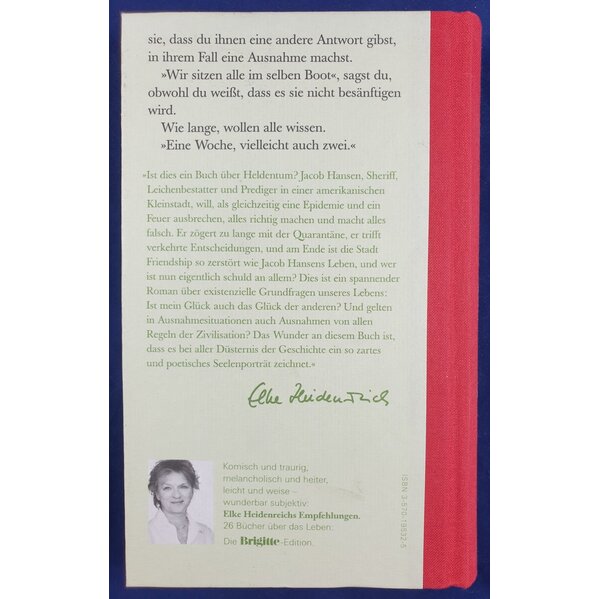 sie, dass du ihnen eine andere Antwort gibst,
in ihrem Fall eine Ausnahme machst.
»Wir sitzen alle im selben Boot«, sagst du,
obwohl du weißt, dass es sie nicht besänftigen
wird.
Wie lange, wollen alle wissen.
»Eine Woche, vielleicht auch zwei.«
»Ist dies ein Buch über Heldentum? Jacob Hansen, Sheriff,
Leichenbestatter und Prediger in einer amerikanischen
Kleinstadt, will, als gleichzeitig eine Epidemie und ein
Feuer ausbrechen, alles richtig machen und macht alles
falsch. Er zögert zu lange mit der Quarantäne, er trifft
verkehrte Entscheidungen, und am Ende ist die Stadt
Friendship so zerstört wie Jacob Hansens Leben, und wer
ist nun eigentlich schuld an allem? Dies ist ein spannender
Roman über existenzielle Grundfragen unseres Lebens:
Ist mein Glück auch das Glück der anderen? Und gelten
in Ausnahmesituationen auch Ausnahmen von allen
Regeln der Zivilisation? Das Wunder an diesem Buch ist,
dass es bei aller Düsternis der Geschichte ein so zartes
und poetisches Seelenporträt zeichnet.«
Elke Heidenreich
Komisch und traurig,
melancholisch und heiter,
leicht und weise –
wunderbar subjektiv:
Elke Heidenreichs Empfehlungen.
26 Bücher über das Leben:
Die Brigitte-Edition.
ISBN 3-570-19532-5